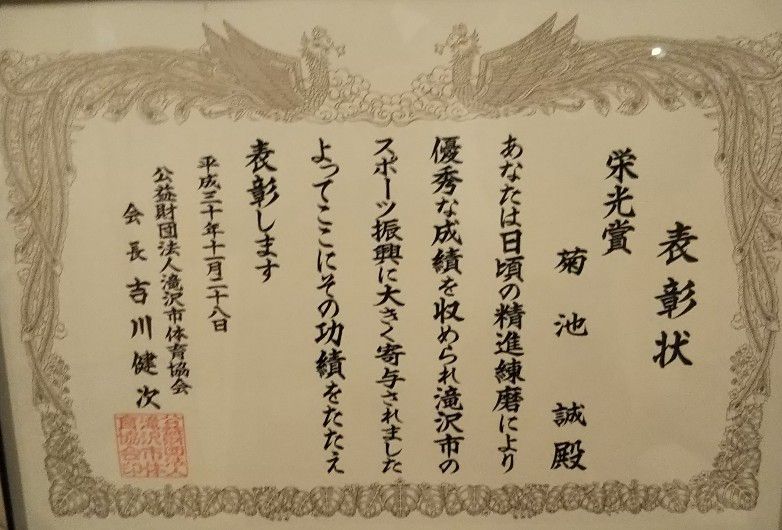 表彰状
栄光賞
菊池 誠殿
あなたは日頃の精進練磨により
優秀な成績を収められ滝沢市の
スポーツ振興に大きく寄与されました
よってここにその功績をたたえ
表彰します
平成三十年十一月二十八日
公益財団法人滝沢市体育協会
会長 吉川健次
公益財団法人
滝沢市体
育協会印